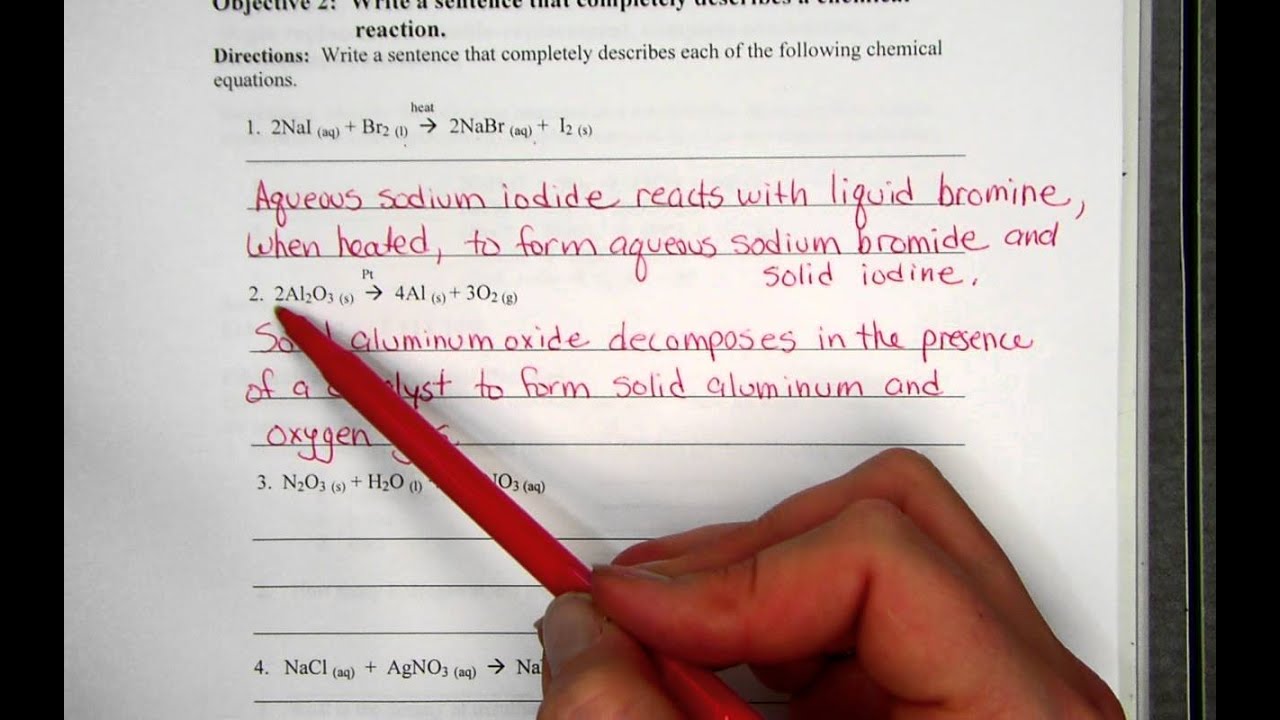 Objective 2: Write a sentence that completely describes a chemical
reaction.
Directions: Write a sentence that completely describes each of the following chemical
equations.
heat
1. 2NaI (aq) + Br2 (l) → 2NaBr (aq) + I2 (s)
Aqueous sodium iodide reacts with liquid bromine,
when heated, to form aqueous sodium bromide and
solid iodine.
Pt
2. 2Al2O3 (s) → 4Al (s) + 3O2 (g)
aluminum oxide decomposes in the presence
of a to form solid aluminum and
oxygen
3. N2O3 (s) + H2O (l) O3 (aq)
4. NaCl (aq) + AgNO3 (aq) → Na